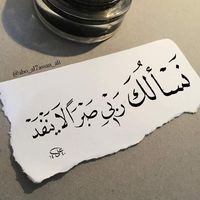 @abo_al7assan_ali
نَسْأَلُكَ رَبِّي صَبْرًا لَا يَنْفَدْ